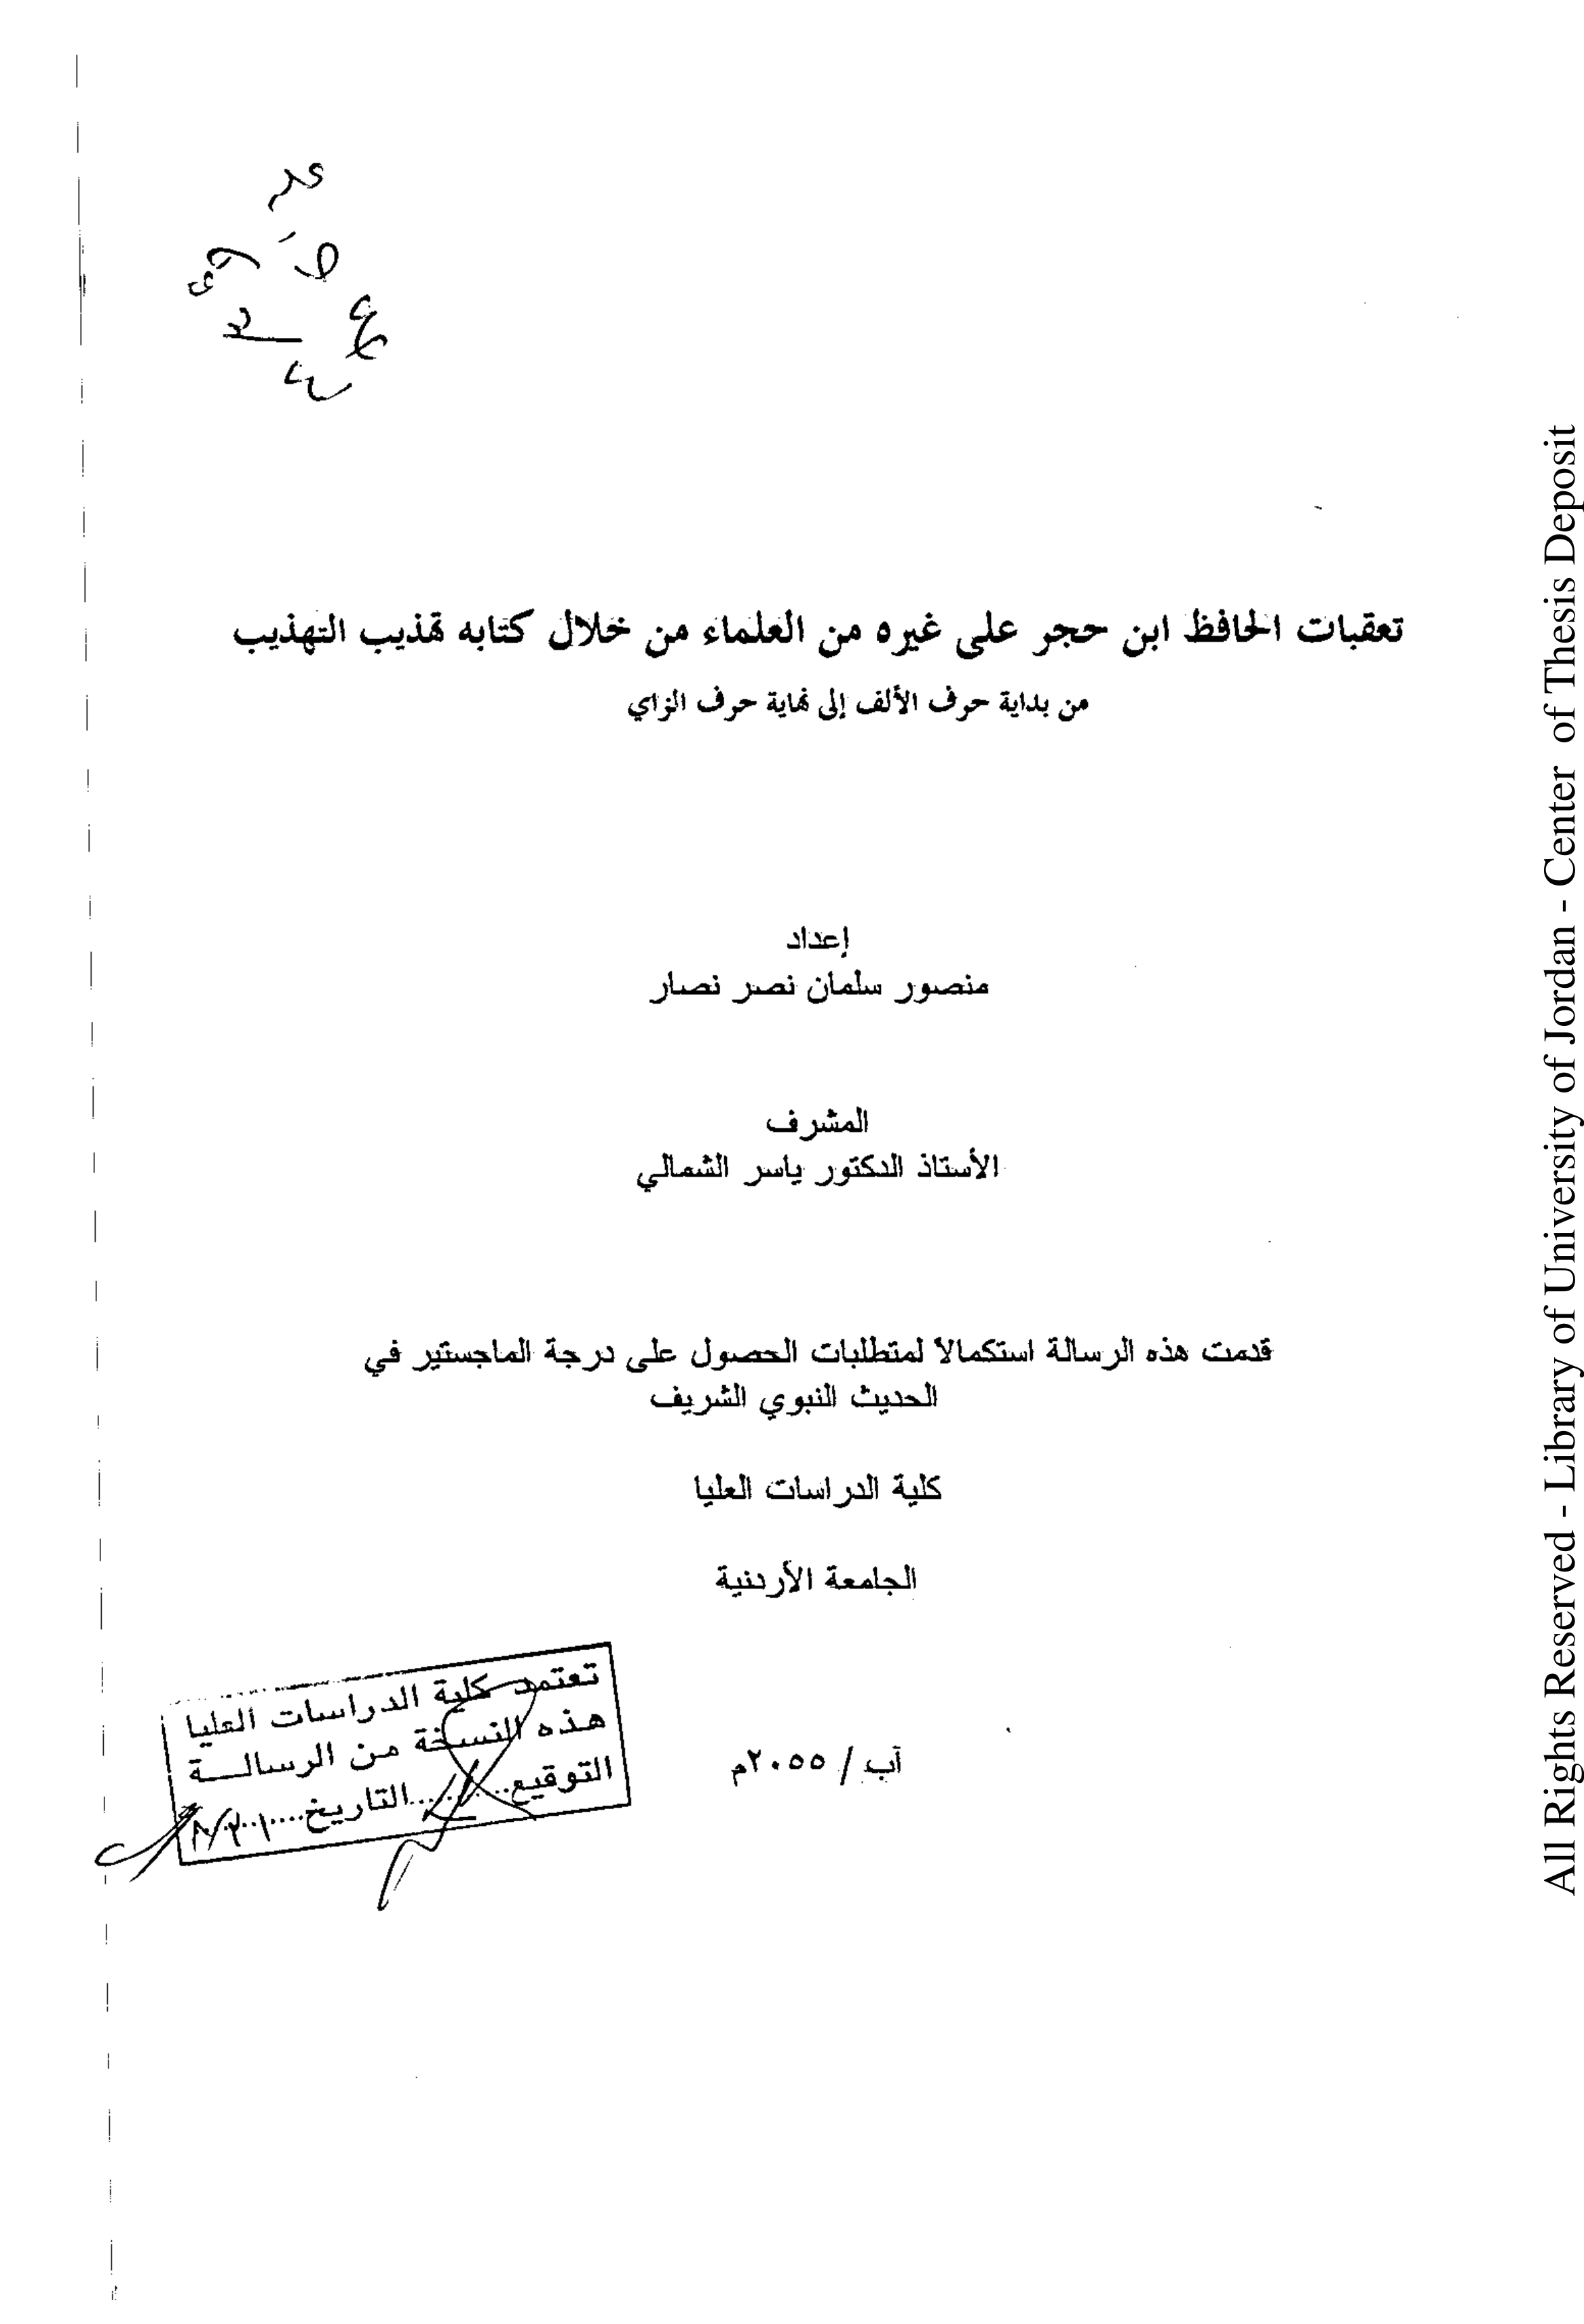 تعقبات الحافظ ابن حجر على غيره من العلماء من خلال كتابه تهذيب التهذيب
من بداية حرف الألف إلى نهاية حرف الزاي
إعداد
منصور سلمان نصر نصار
المشرف
الأستاذ الدكتور ياسر الشمالي
قدمت هذه الرسالة استكمالاً لمتطلبات الحصول على درجة الماجستير في
الحديث النبوي الشريف
كلية الدراسات العليا
الجامعة الأردنية
تعتمد كلية الدراسات العليا
هذه النسخة من الرسالــة
التوقيع.........التاريخ.......
آب / ٢٠٥٥م
All Rights Reserved - Library of University of Jordan - Center of Thesis Deposit